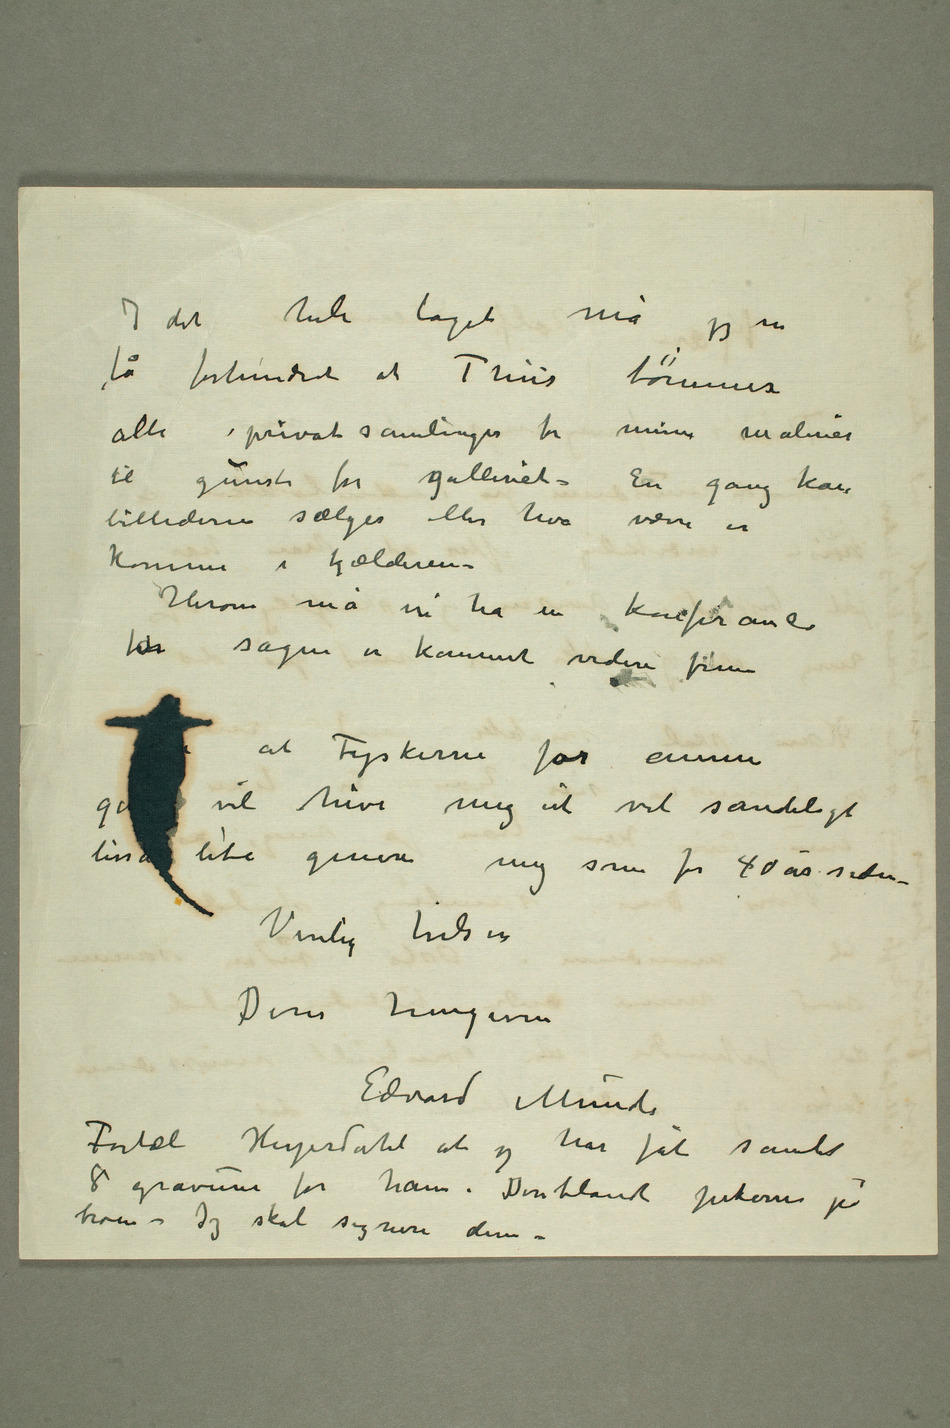 I det hele taget må jeg nu
få forhindret at Thiis tømmer
alle privatsamlinger for mine malerier
til gunst for galleriet – En gang kan
billederne sælges eller hva værre er
komme i kjælderen –
Herom må vi ha en konferance
før sagen er kommet videre frem
at Tyskerne for annen
gang vil hive mig ut vil sandeligt
lisså lite genere mig som for 40 år siden –
Venlig hilsen
Deres hengivne
Edvard Munch
Fortæl Heyerdahl at jeg har fåt samlet
8 gravurer for ham. Deriblandt pikerne på
broen – Jeg skal signere dem –